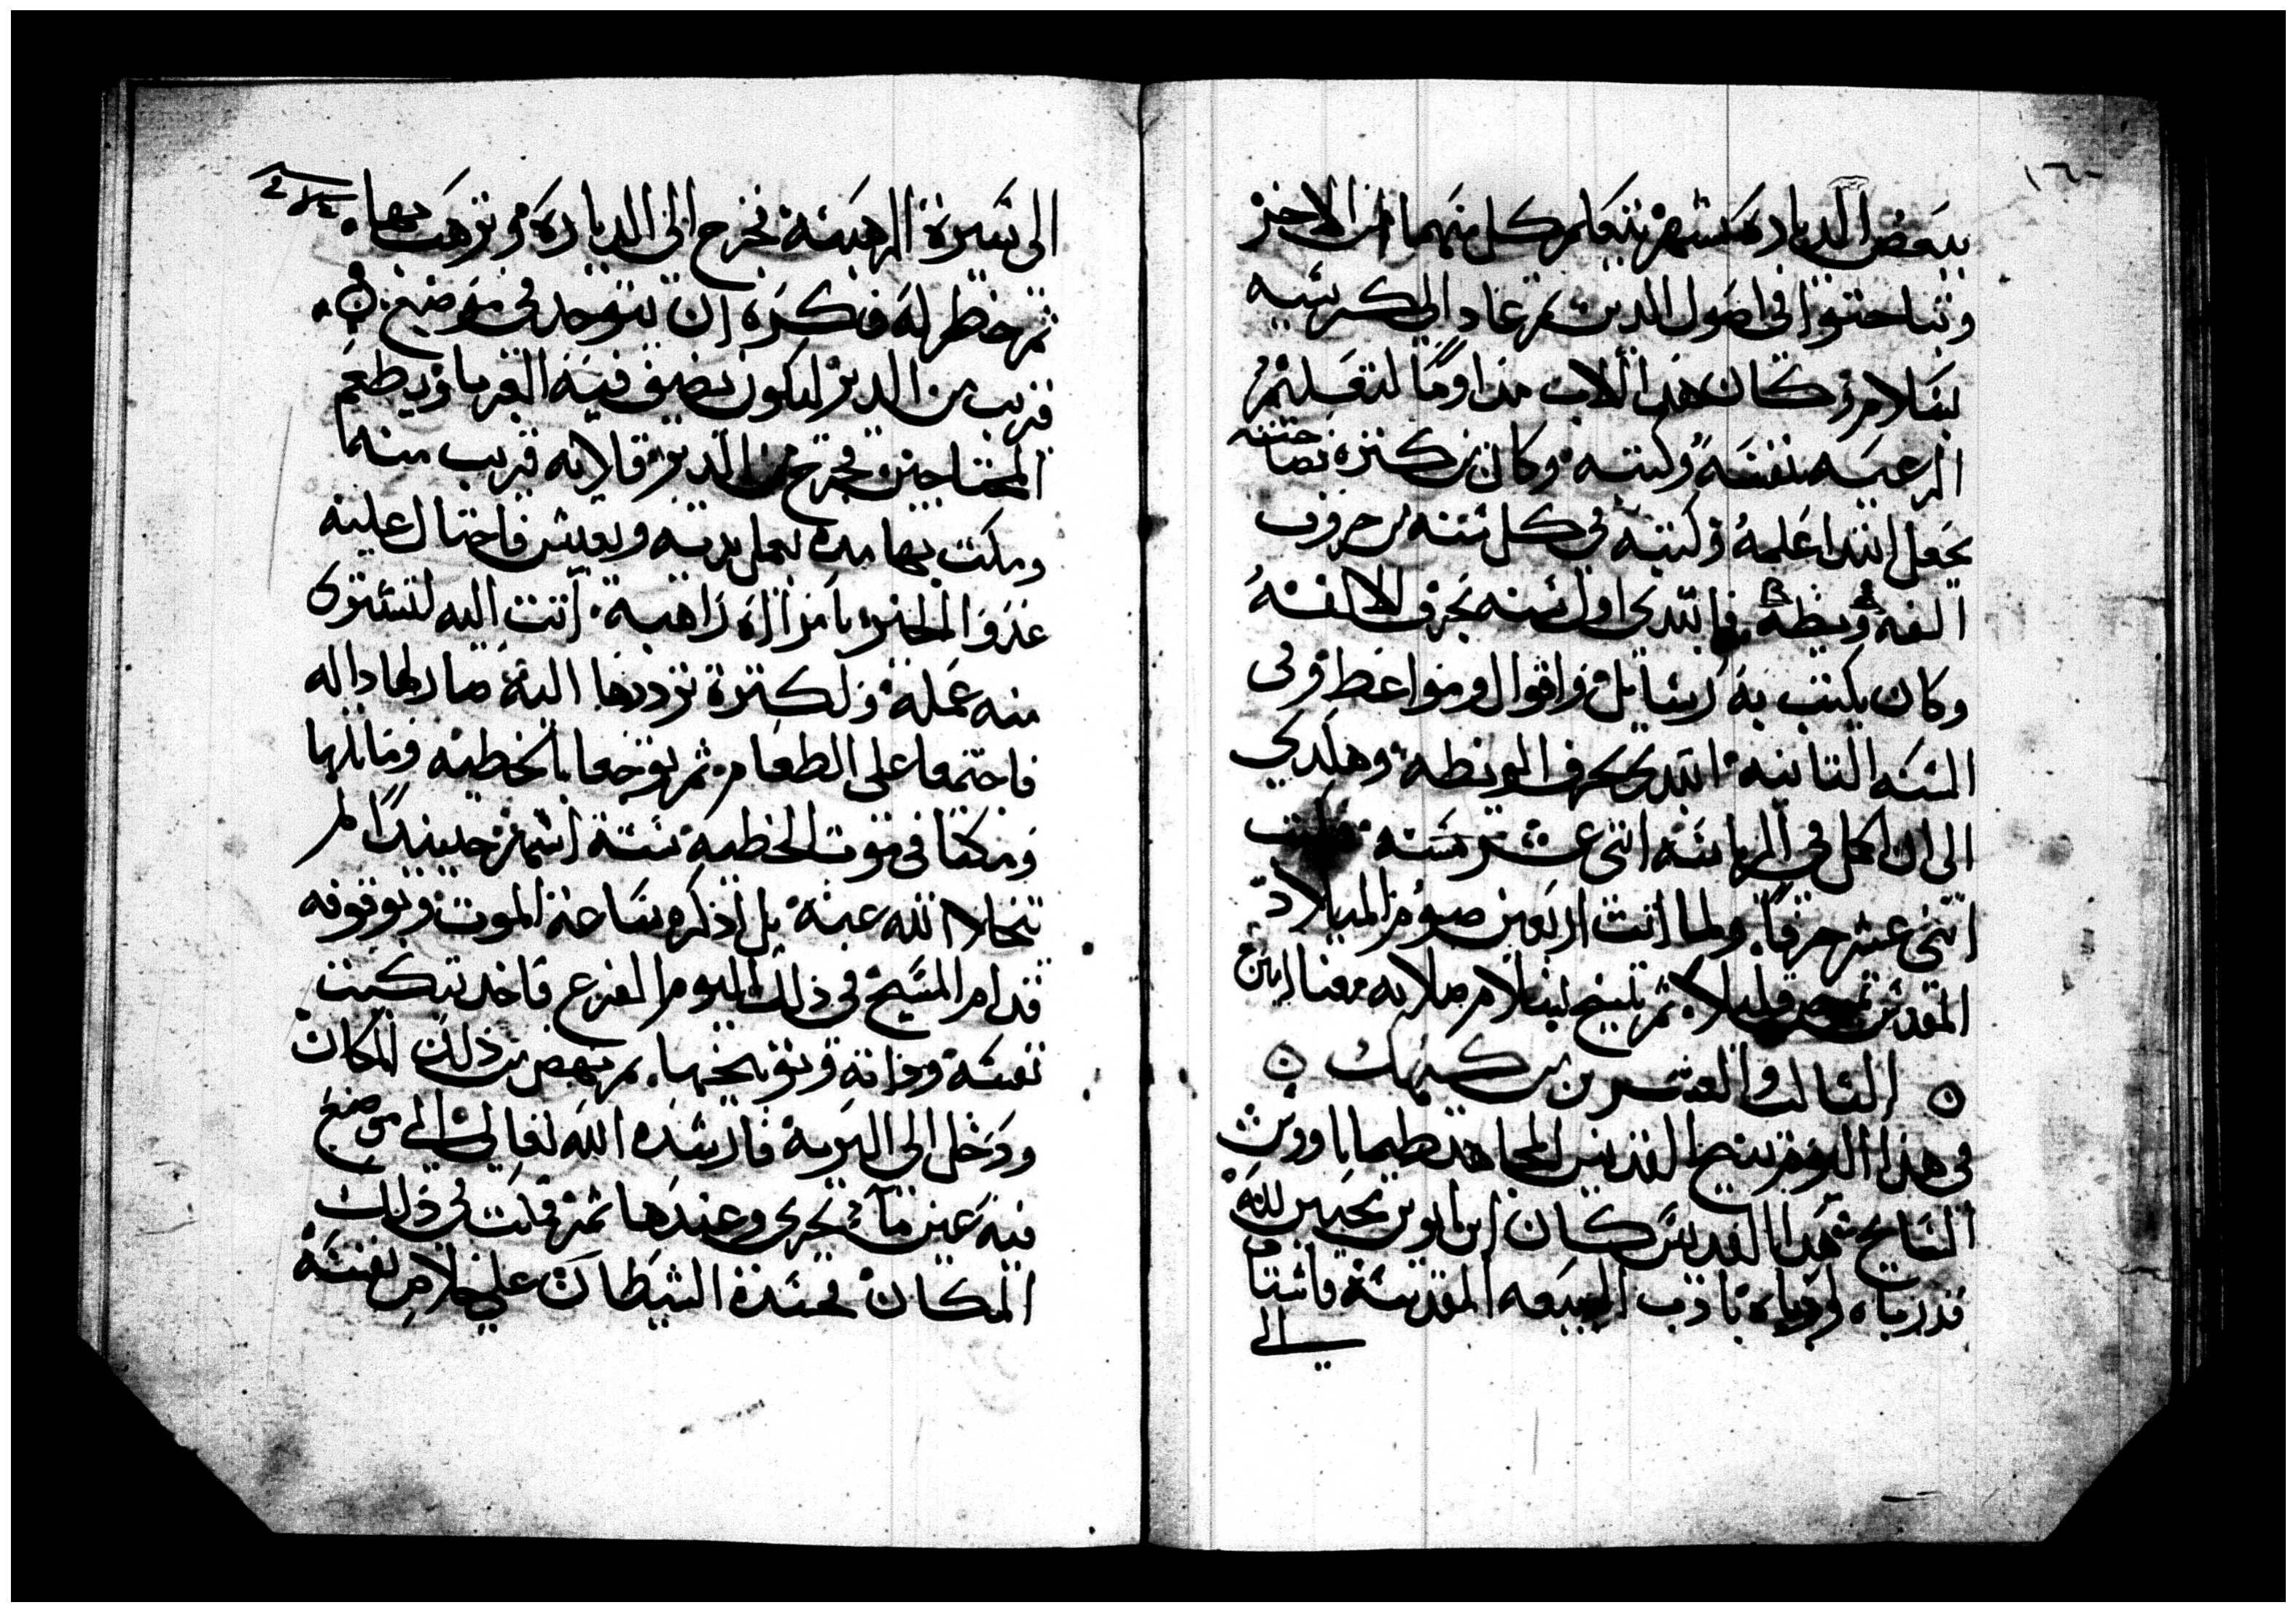 ببعض الديارة شهر يتعلم كل منهما من الاخر
وتباحثوا فى اصول الدين ثم عاد الى كرسيه
بسلام وكان هذا الاب مداوما لتعليم
الرعيه بنفسه وكتبه وكان من كثرة فصاحته
يجعل ابتدا علمه وكتبه في كل سنه من حروف
الفه ويطه فابتدى اول سنه بحرف الالفه
وكان يكتب به رسايل واقوال ومواعظ وفى
السنه التانيه ابتدى بحرف الويطه وهكدي
الى ان اكمل في الرياسه اثنى عشر سنه
اثنى عشر حرفا ولما اتت اربعين صوم الميلاد
المقدس تمرض قليلا ثم تنيح بسلام صلاته معنا امين
ه التالت والعشرين من كيهك ه
فى هذا اليوم تنيح القديس المجاهد طيماتاووس
السايح هذا القديس كان ابن ابوين محبين لله
قد رباه ورباه بادب البيعه المقدسة فاشتاق
الى
١٦٠
الى سيرة الرهبنة فخرج الى الديارة وترهب بها.
ثم خطر له فكره ان يتوحد فى موضع
قريب من الدير ليكون يضيف فيه الغربا ويطعم
المحتاجين فخرج من الدير قلايه قريب منه
ومكث بها مده يعمل بيديه ويعيش فاحتال عليه
عدو الخير بامراة راهبة اتت اليه لتشترى
منه عمله ولكثرة ترددها اليه صار لها داله
فاجتمعا على الطعام ثم توقعا بالخطيه ومالها
ومكثا فى موت الخطيه ستة اشهر حينيدا لم
يتخلا الله عنه بل اذكره ساعة الموت وبوقوفه
قدام المسيح فى ذلك اليوم المفزع فاخد تبكيت
نفسه وذاته وتوبيخها. ثم نهض من ذلك المكان
ودخل الى البرية فارشده الله تعالى الى موضع
فيه عين ماء تجرى وعندها نخلة فلبث فى ذلك
المكان فحسده الشيطان على خلاص نفسه